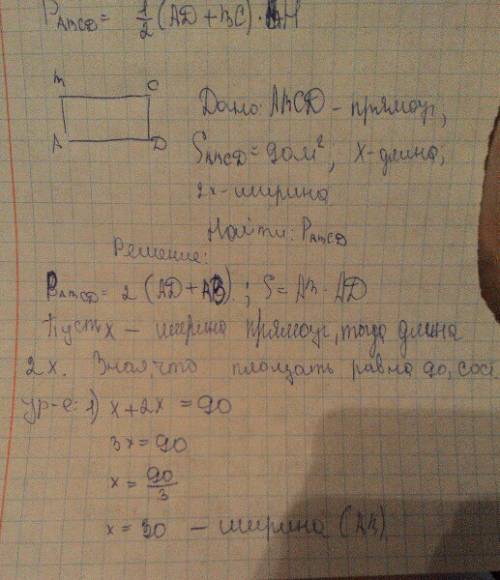 P ABCD = 1/2 (AD + BC) · AH
B C
A D
Дано: ABCD – прямоуг,
S ABCD = 90 м², x – длина,
2x – ширина
Найти: P ABCD
Решение:
P ABCD = 2 (AD + AB) ; S = AB · AD
Пусть x – ширина прямоуг, тогда длина
2x. Зная, что площать равна 90, сост
ур-е: 1) x + 2x = 90
3x = 90
x = 90/3
x = 30 – ширина (AB)